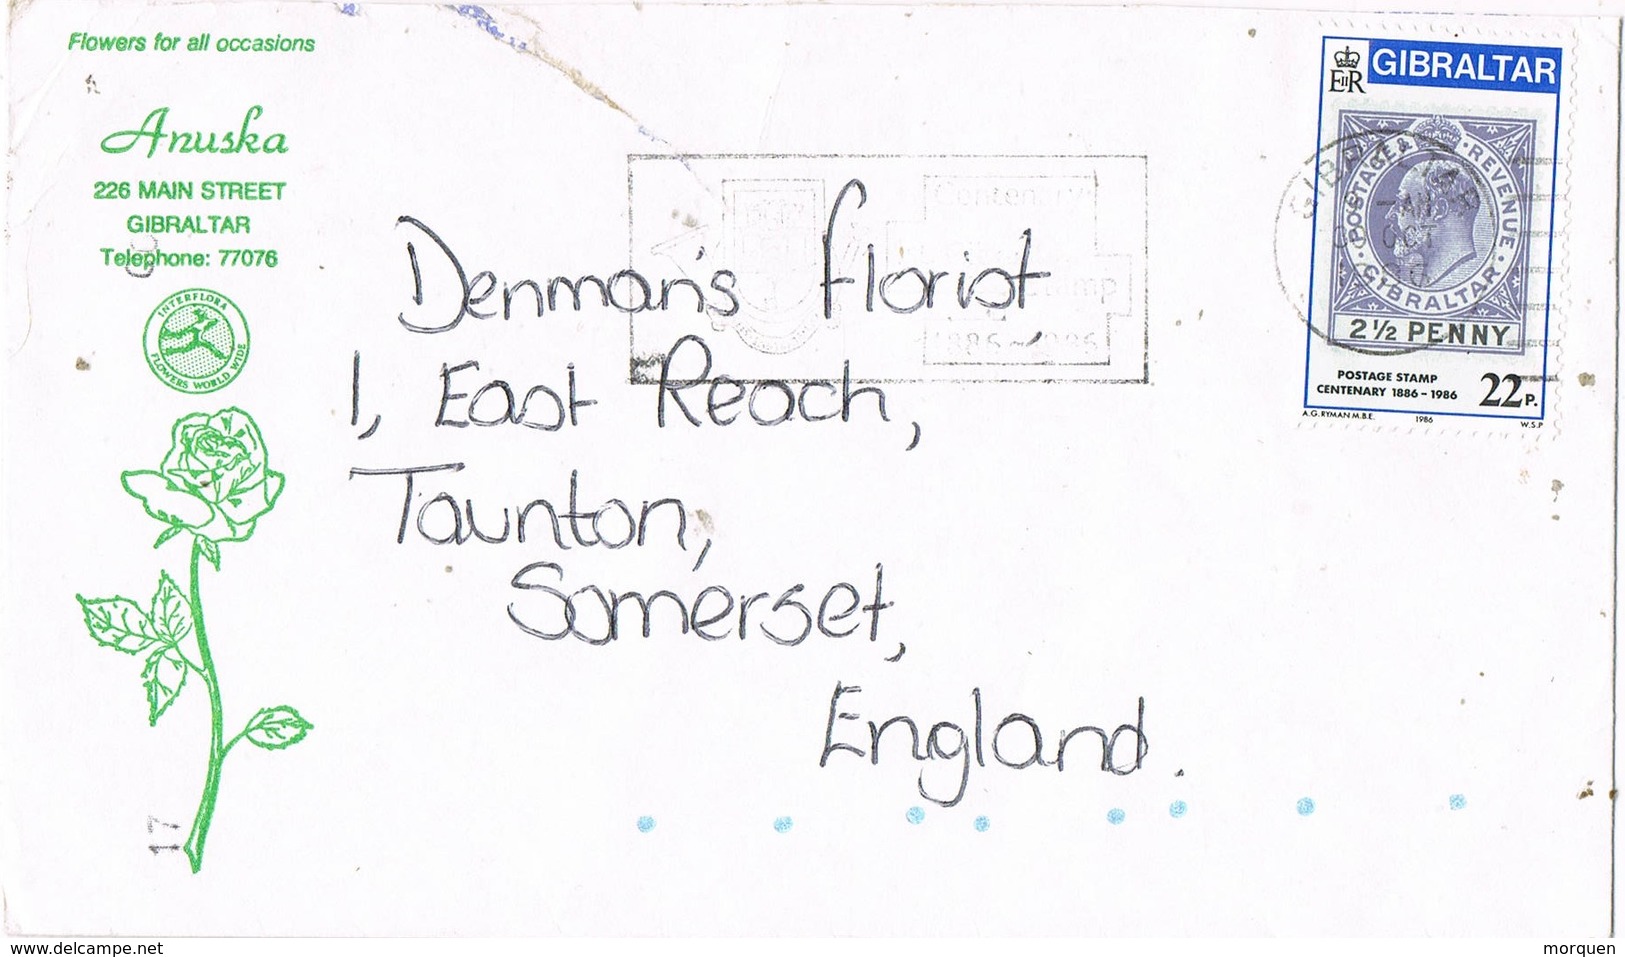 Flowers for all occasions
Anuska
226 MAIN STREET
GIBRALTAR
Telephone: 77076
INTERFLORA
FLOWERS WORLD WIDE
17
Centenary
Stamp
1886~1986
Denman's florist
1, East Reach,
Taunton,
Somerset,
England.
EIIR
GIBRALTAR
POSTAGE & REVENUE
GIBRALTAR
2½ PENNY
POSTAGE STAMP
CENTENARY 1886-1986
22P.
A.G. RYMAN M.B.E. 1986 W.S.P
GIBRALTAR
-AM
OCT
www.delcampe.net
morquen